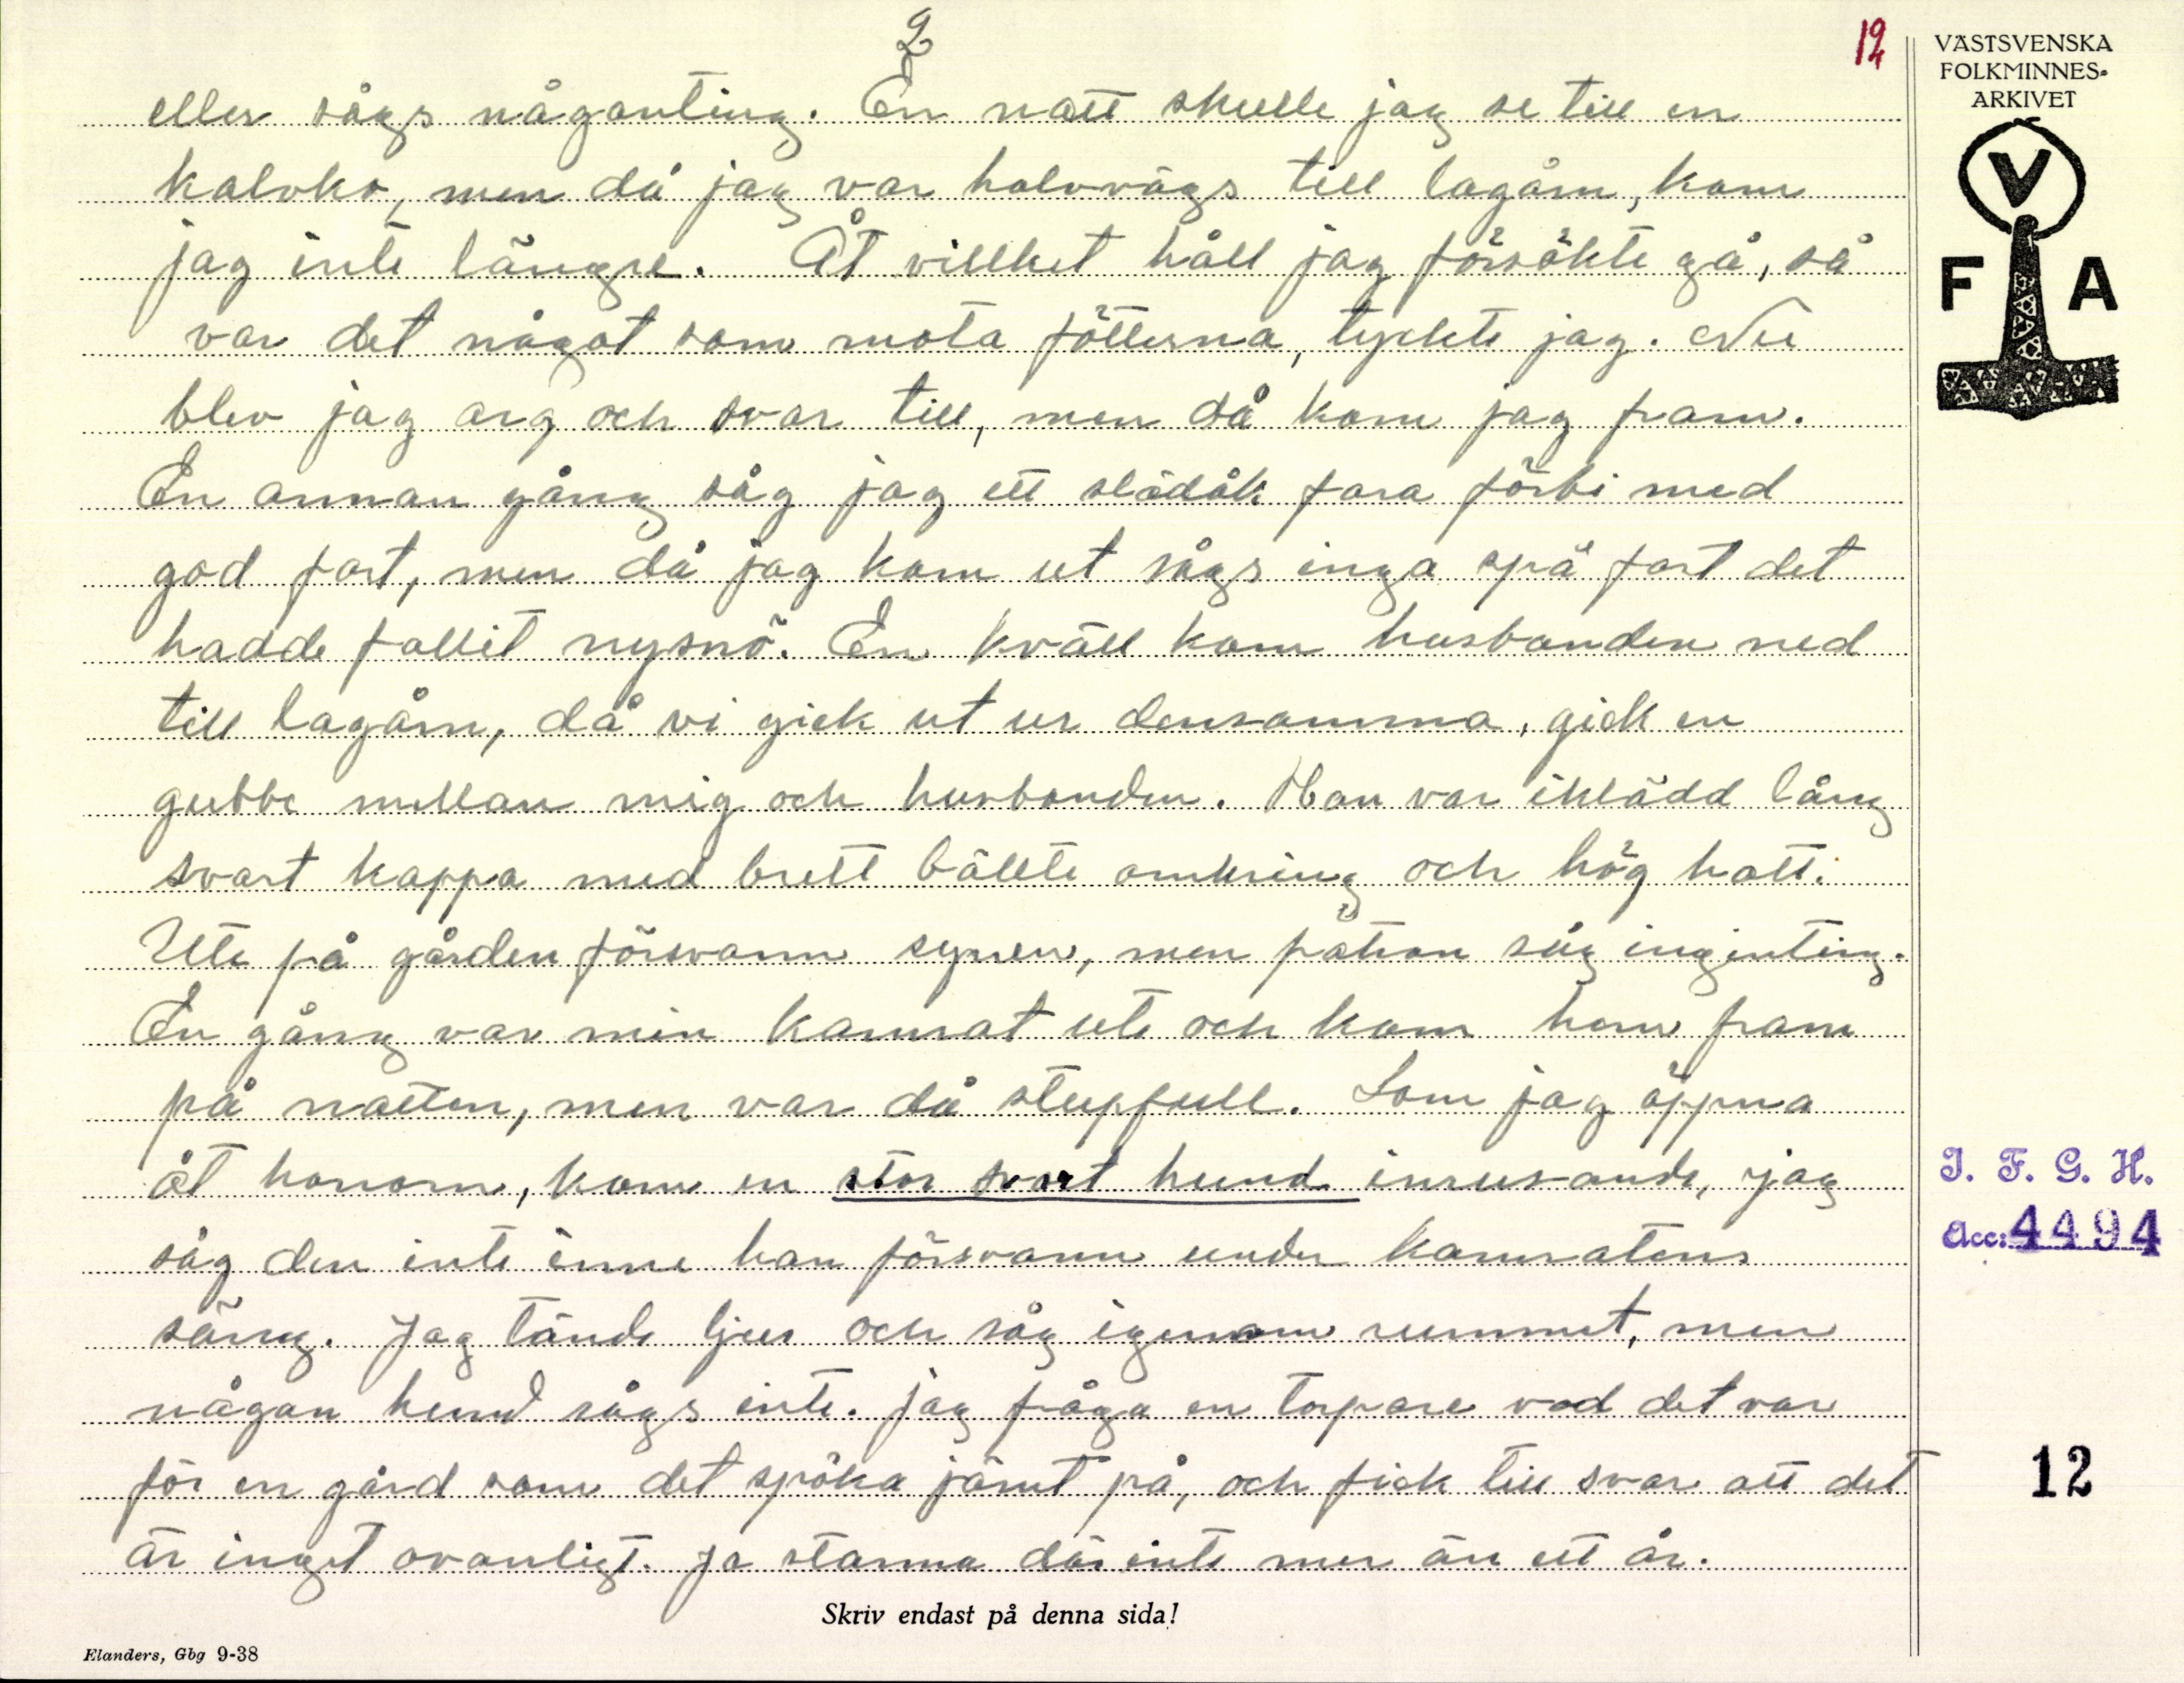 2
12
VÄSTSVENSKA
FOLKMINNES-
ARKIVET
V
F A
eller sågs någonting. En natt skulle jag se till en
kalvko, men då jag var halvvägs till lagårn, kom
jag inte längre. Åt villket håll jag försökte gå, så
var det något som mota fötterna, tyckte jag. Nu
blev jag arg och svor till, men då kom jag fram.
En annan gång såg jag ett slädåk fara förbi med
god fart, men då jag kom ut sågs inga spå fast det
hadde fallit nysnö. En kväll kom husbonden ned
till lagårn, då vi gick ut ur densamma, gick en
gubbe mellan mig och husbonden. Han var iklädd lång
svart kappa med brett bällte omkring och hög hatt.
Ute på gården försvann synen, men patron såg ingenting.
En gång var min kamrat ute och kom hem fram
på natten, men var då stupfull. Som jag öppna
åt honom, kom en stor svart hund inrusande, jag
såg den inte inne han försvann under kamratens
säng. Jag tände ljus och såg igenom rummet, men
någon hund sågs inte. jag fråga en torpare vad det var
för en gård som det spöka jämt på, och fick till svar att det
är inget ovanligt. Ja stanna där inte mer än ett år.
I. F. G. H.
Acc: 4494
12
Skriv endast på denna sida!
Elanders, Gbg 9-38